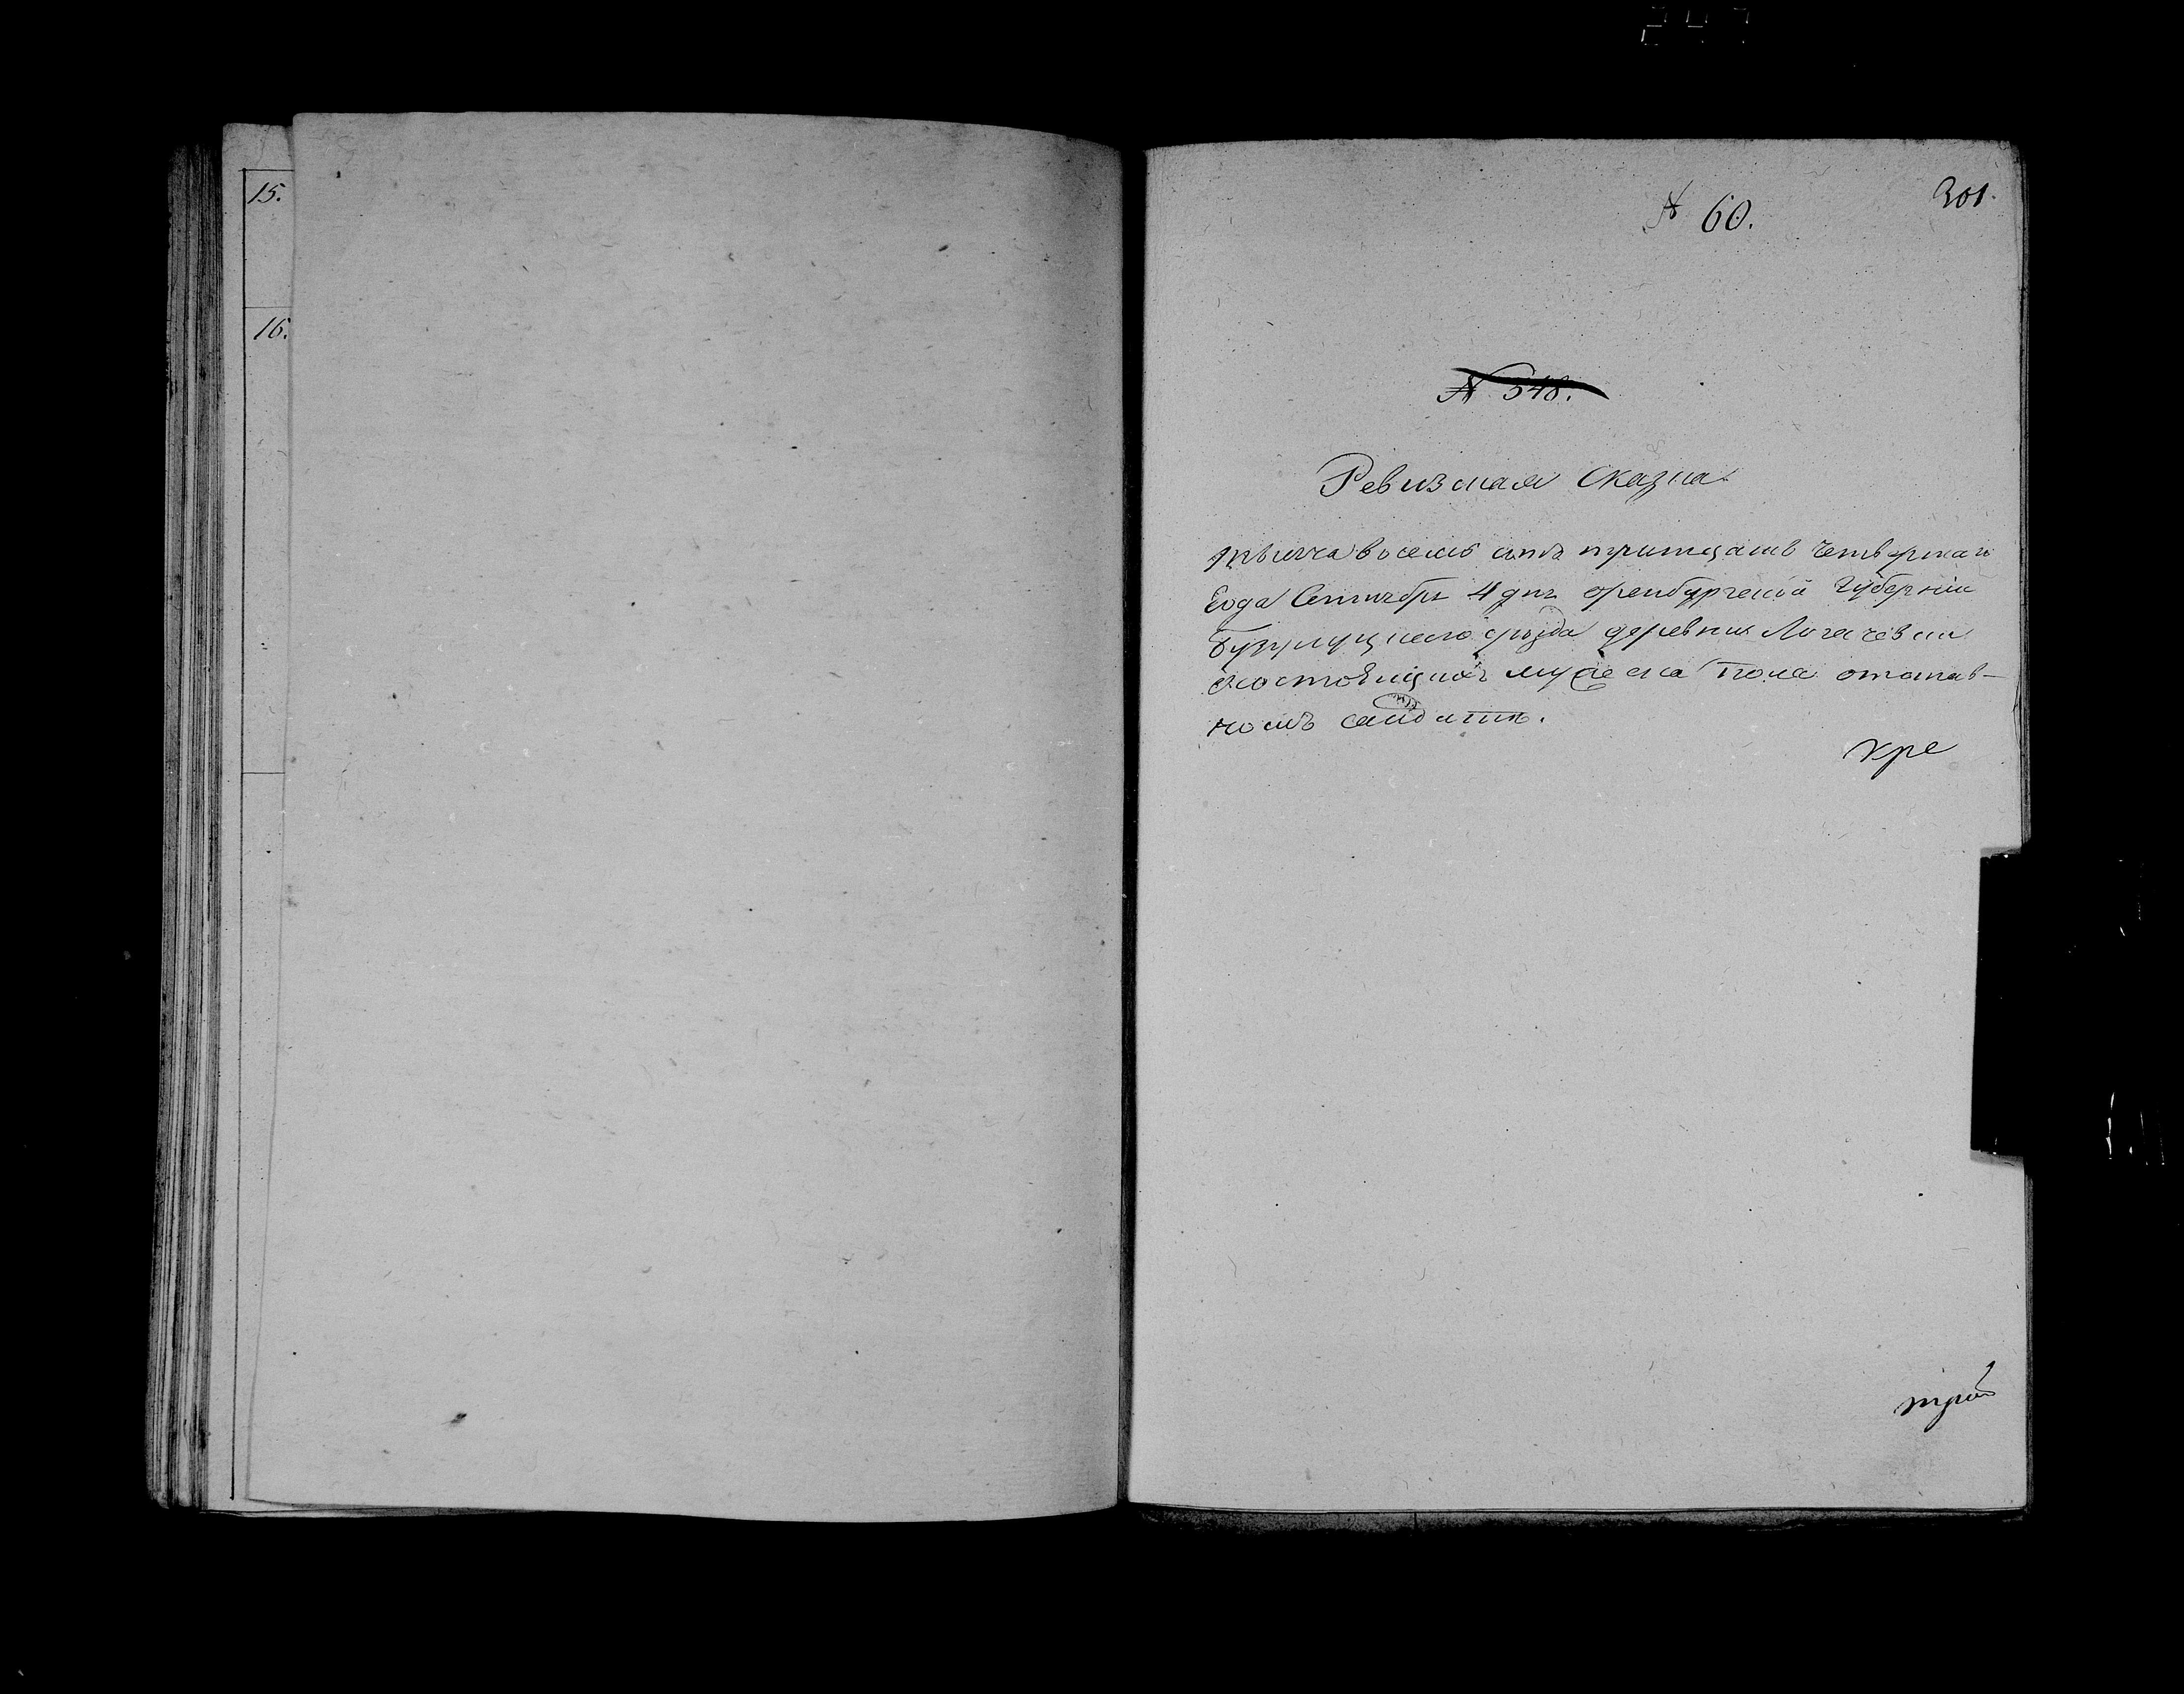 15.
16.
301.
№ 60.
№ 548.
Ревизская Сказка
тысяча восемь сотъ тритцать четвертаго
Года Сентября 4 дня оренбургской Губернии
Бузулуцкаго уезда деревни Логачевки
состоящихъ мужеска пола отстав-
номъ салдате.
кре